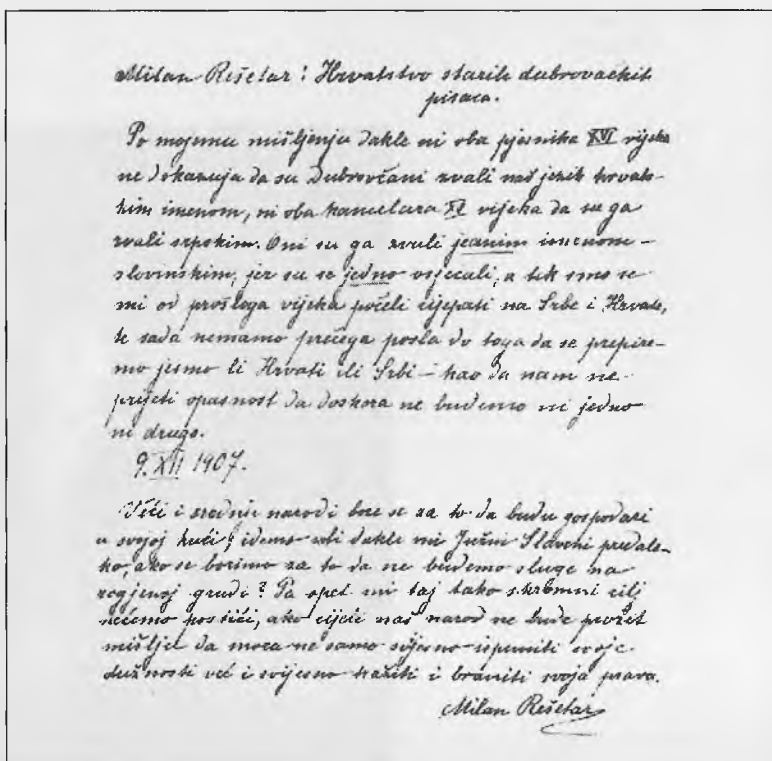 Milan Rešetar: Hrvatstvo starih dubrovačkih
pisaca.
Po mojemu mišljenju dakle ni oba pjesnika XVI vijeka
ne dokazuju da su Dubrovčani zvali naš jezik hrvat-
skim imenom, ni oba kancelara XV vijeka da su ga
zvali srpskim. Oni su ga zvali jednim imenom –
slovinskim, jer su se jedno osjećali, a tek smo se
mi od prošloga vijeka počeli cijepati na Srbe i Hrvate,
te sada nemamo prečega posla do toga da se prepire-
mo jesmo li Hrvati ili Srbi – kao da nam ne
prijeti opasnost da doskora ne budemo ni jedno
ni drugo.
9. XII 1907.
Veći i srednji narodi bore se za to da budu gospodari
u svojoj kući; idemo li dakle mi Južni Slaveni predale-
ko, ako se borimo za to da ne budemo sluge na
rogjenoj grudi? Pa opet mi taj tako skromni cilj
nećemo postići, ako cijeli naš narod ne bude prožet
mišlju da mora ne samo svijesno ispuniti svoje
dužnosti već i svijesno tražiti i braniti svoja prava.
Milan Rešetar